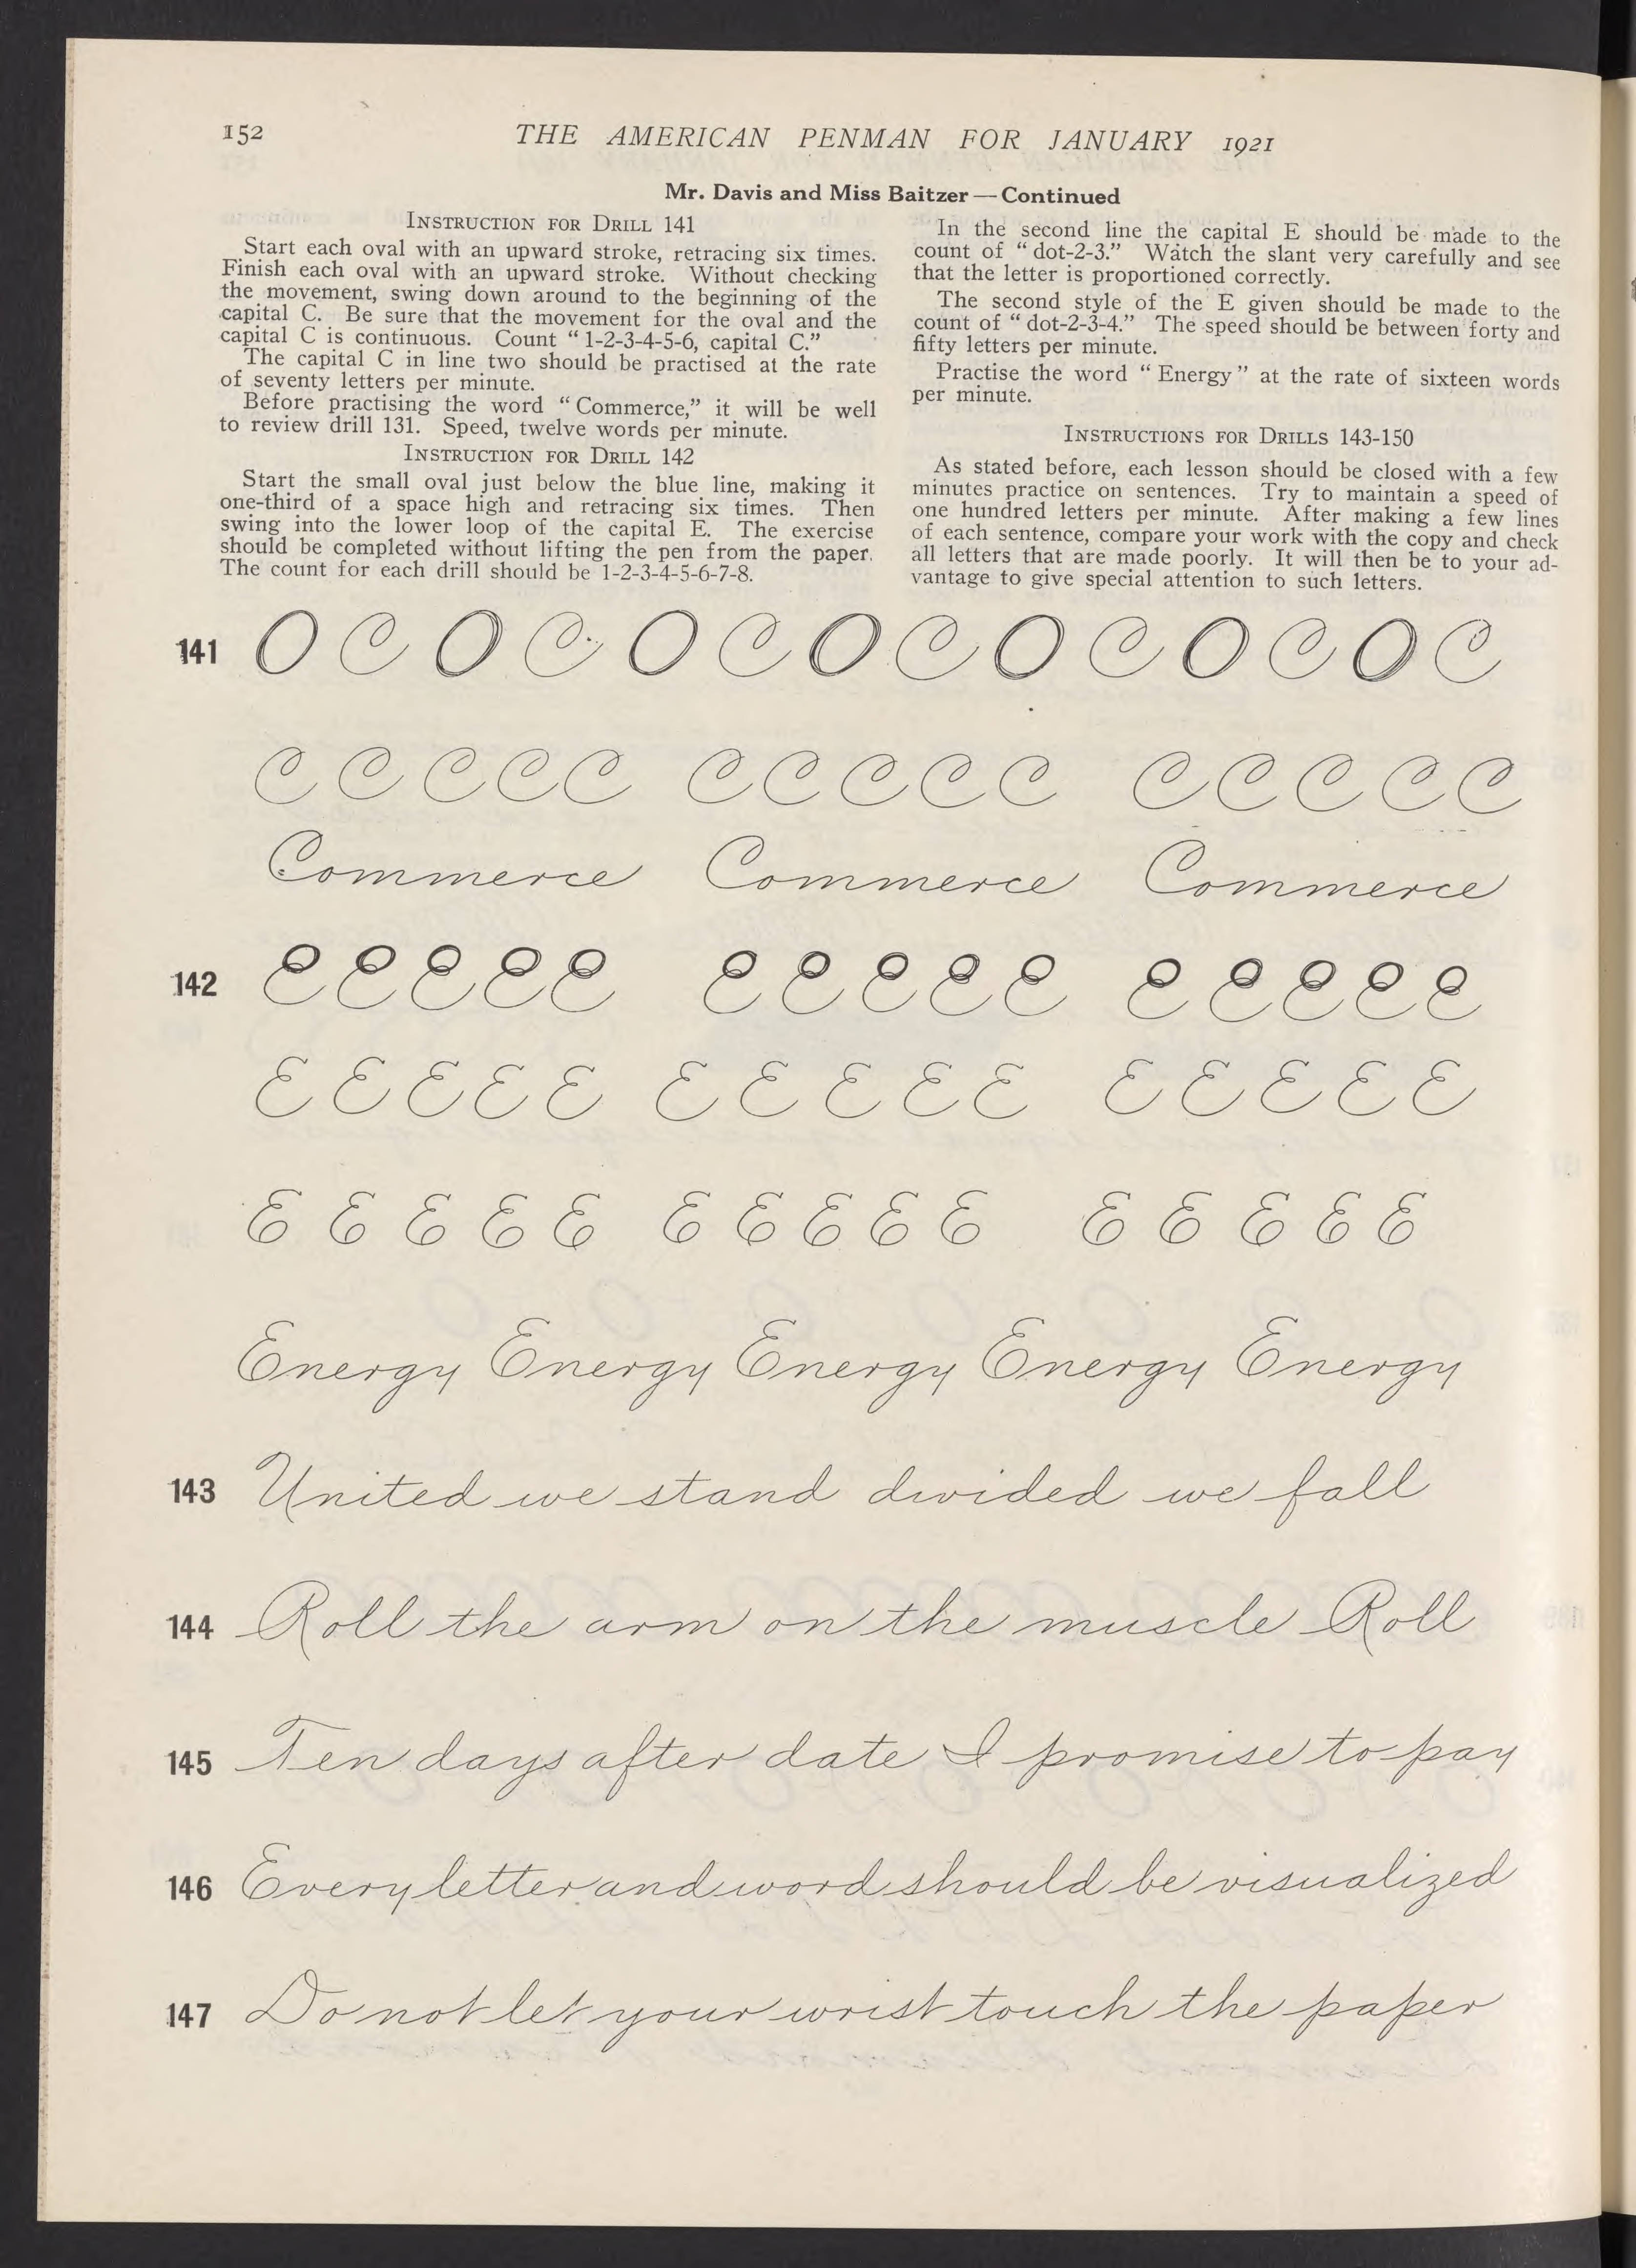 152
THE AMERICAN PENMAN FOR JANUARY 1921
Mr. Davis and Miss Baitzer — Continued
INSTRUCTION FOR DRILL 141
Start each oval with an upward stroke, retracing six times.
Finish each oval with an upward stroke. Without checking
the movement, swing down around to the beginning of the
capital C. Be sure that the movement for the oval and the
capital C is continuous. Count "1-2-3-4-5-6, capital C."
The capital C in line two should be practised at the rate
of seventy letters per minute.
Before practising the word "Commerce," it will be well
to review drill 131. Speed, twelve words per minute.
INSTRUCTION FOR DRILL 142
Start the small oval just below the blue line, making it
one-third of a space high and retracing six times. Then
swing into the lower loop of the capital E. The exercise
should be completed without lifting the pen from the paper.
The count for each drill should be 1-2-3-4-5-6-7-8.
In the second line the capital E should be made to the
count of "dot-2-3." Watch the slant very carefully and see
that the letter is proportioned correctly.
The second style of the E given should be made to the
count of "dot-2-3-4." The speed should be between forty and
fifty letters per minute.
Practise the word "Energy" at the rate of sixteen words
per minute.
INSTRUCTIONS FOR DRILLS 143-150
As stated before, each lesson should be closed with a few
minutes practice on sentences. Try to maintain a speed of
one hundred letters per minute. After making a few lines
of each sentence, compare your work with the copy and check
all letters that are made poorly. It will then be to your ad-
vantage to give special attention to such letters.
141 O C O C O C O C O C O C O C
C C C C C C C C C C C C C C C
Commerce Commerce Commerce
142 E E E E E E E E E E E E E E E
E E E E E E E E E E E E E E E
E E E E E E E E E E E E E E E
Energy Energy Energy Energy Energy
143 United we stand divided we fall
144 Roll the arm on the muscle Roll
145 Ten days after date I promise to pay
146 Every letter and word should be visualized
147 Do not let your wrist touch the paper